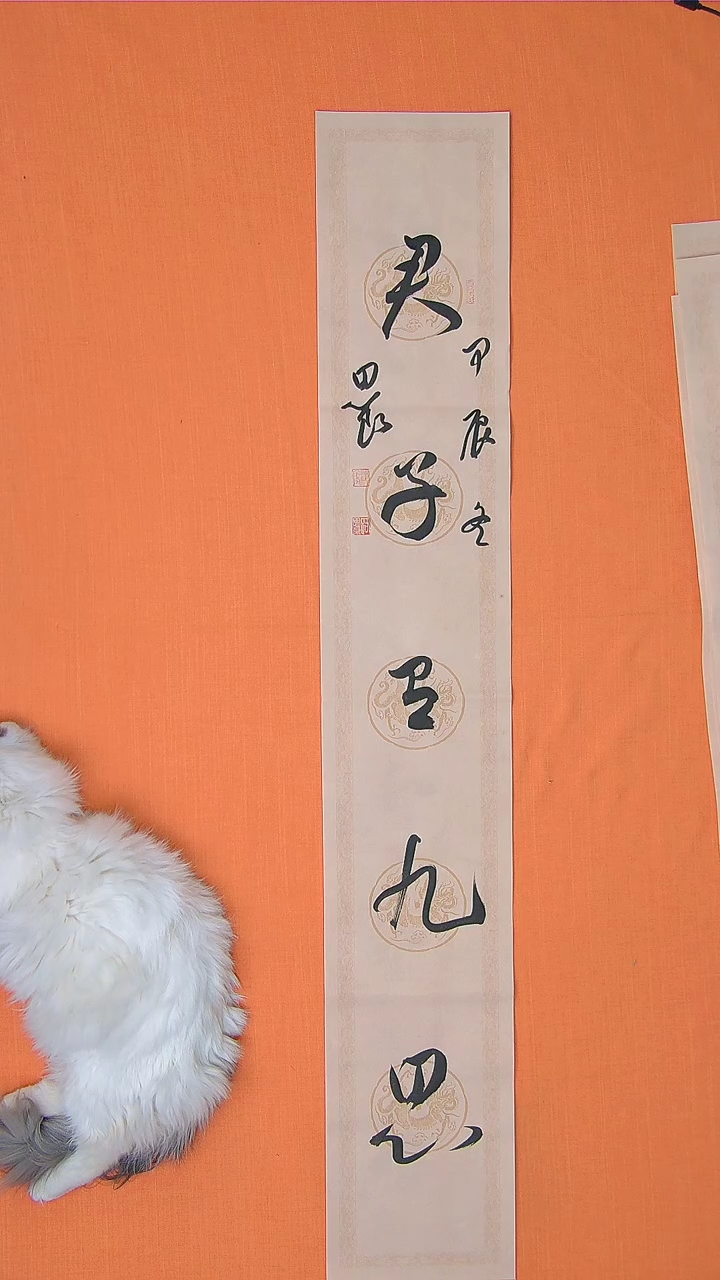 甲辰冬
君子有九思
田